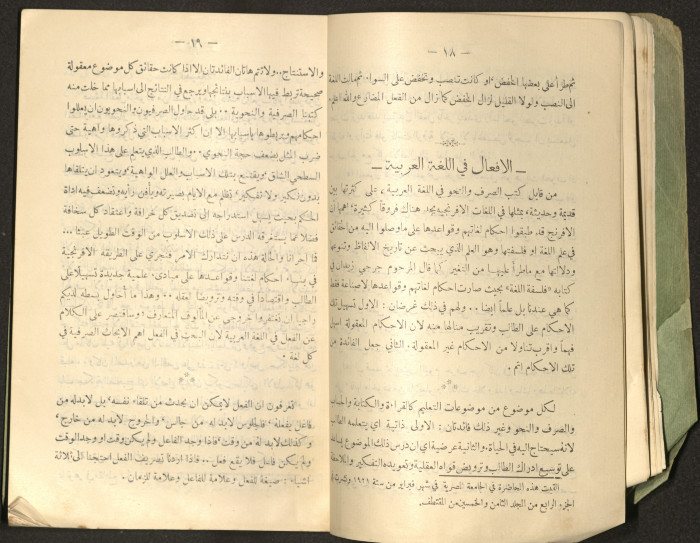 — ١٨ —
ثم طرأ على بعضها الخفض، او كانت تنصب وتخفض على السواء. ثم مالت اللغة
الى النصب ولولا القليل لزال الخفض كما زال من الفعل المضارع والله اعلم.
— الافعال في اللغة العربية —
من قابل كتب الصرف والنحو في اللغة العربية، على كثرتها بين
قديمة وحديثة، بمثلها في اللغات الافرنجية يجد هناك فروقاً كثيرة، اهمها ان
الافرنج قد طبقوا احكام لغاتهم وقواعدها على ما وصلوا اليه من الحقائق
في علم اللغة او فلسفتها وهو العلم الذي يبحث عن تاريخ الالفاظ وتنوعها
ودلالتها مع ما طرأ عليها من التغير كما قال المرحوم جرجي زيدان في
كتابه «فلسفة اللغة» بحيث صارت احكام لغاتهم وقواعدها لا صناعة فقط
كما هي عندنا بل علماً ايضاً .. ولهم في ذلك غرضان: الاول تسهيل تلك
الاحكام على الطالب وتقريب منالها منه لان الاحكام المعقولة اسهل
فهماً واقرب تناولا من الاحكام غير المعقولة. الثاني جعل الفائدة من
تلك الاحكام اتم.
لكل موضوع من موضوعات التعليم كالقراءة والكتابة والحساب
والصرف والنحو وغير ذلك فائدتان: الاولى ذاتية اي يتعلمه الطالب
لانه سيحتاج اليه في الحياة. والثانية عرضية اي ان درس ذلك الموضوع يساعد
على توسيع ادراك الطالب وترويض قواه العقلية وتعويده التفكير والملاحظة
القيت هذه المحاضرة في الجامعة المصرية في شهر فبراير من سنة ١٩٢١ ونشرت في
الجزء الرابع من المجلد الثامن والخمسين من المقتطف.
— ١٩ —
والاستنتاج.. ولا تتم هاتان الفائدتان الا اذا كانت حقائق كل موضوع معقولة
صحيحة تربط فيها الاسباب بنتائجها ويرجع في النتائج الى اسبابها مما خلت منه
كتبنا الصرفية والنحوية.. بلى قد حاول الصرفيون والنحويون ان يعللوا
احكامهم ويربطوها باسبابها الا ان اكثر الاسباب التي ذكروها واهية حتى
ضرب المثل بضعف حجة النحوي.. والطالب الذي يتعلم على هذا الاسلوب
السطحي الشاق ويقتنع بتلك الاسباب والعلل الواهية ويتعود ان يتلقاها
بدون نكير ولا تفكير، تظلم مع الايام بصيرته ويأفن رأيه وتضعف فيه اداة
الحكم بحيث يسهل استدراجه الى تصديق كل خرافة واعتقاد كل سخافة
فضلا عما يستغرقه الدرس على ذلك الاسلوب من الوقت الطويل عبثاً..
فما احرانا والحالة هذه ان نتدارك الامر فنجري على الطريقة الافرنجية
في بناء احكام لغتنا وقواعدها على مبادىء علمية جديدة تسهيلا على
الطالب واقتصاداً في وقته وترويضاً لعقله.. وهذا ما احاول بسطه لديكم
راجياً ان تغتفروا خروجي عن المألوف المتعارف، وسأقتصر على الكلام
عن الفعل في اللغة العربية لان البحث في الفعل اهم الابحاث الصرفية في
كل لغة.
تعرفون ان الفعل لا يمكن ان يحدث من تلقاء نفسه، بل لا بد له من
فاعل يفعله، فالجلوس لا بد له من جالس، والخروج لا بد له من خارج،
وكذلك لا بد له من وقت، فاذا وجد الفاعل ولم يكن وقت او وجد الوقت
ولم يكن فاعل فلا يقع فعل.. فاذا اردنا تصريف الفعل احتجنا الى ثلاثة
اشياء: صيغة للفعل وعلامة للفاعل وعلامة للزمان.